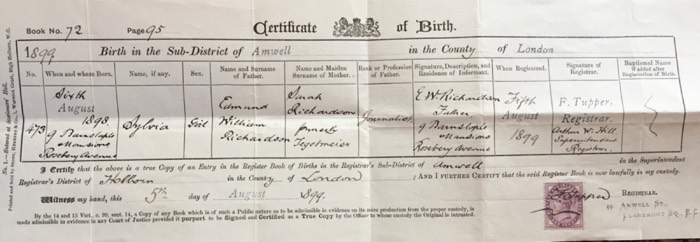 Book No. 72 Page 95 Certificate of Birth.
1899 Birth in the Sub-District of Amwell in the County of London
No. When and where Born. Name, if any. Sex. Name and Surname of Father. Name and Maiden Surname of Mother. Rank or Profession of Father. Signature, Description, and Residence of Informant. When Registered. Signature of Registrar. Baptismal Name if added after Registration of Birth.
473 Sixth August 1898 9 Mansions Rosebery Avenue Sylvia Girl Edmund William Richardson Sarah Richardson formerly Journalist E W Richardson Father 9 Mansions Rosebery Avenue Fifth August 1899 F. Tupper. Registrar. Arthur W. Hill Superintendent Registrar.
I Certify that the above is a true Copy of an Entry in the Register Book of Births in the Registrar's Sub-District of Amwell in the Superintendent
Registrar's District of Holborn in the County of London; AND I FURTHER CERTIFY that the said Register Book is now lawfully in my custody.
Witness my hand, this 5th day of August 1899. REGISTRAR.
AMWELL ST.
By the 14 and 15 Vict., c. 99, sect. 14, a Copy of any Book which is of such a Public nature as to be admissible in evidence on its mere production from the proper custody, is
made admissible in evidence in any Court of Justice provided it purport to be Signed and Certified as a True Copy by the Officer to whose custody the Original is intrusted.